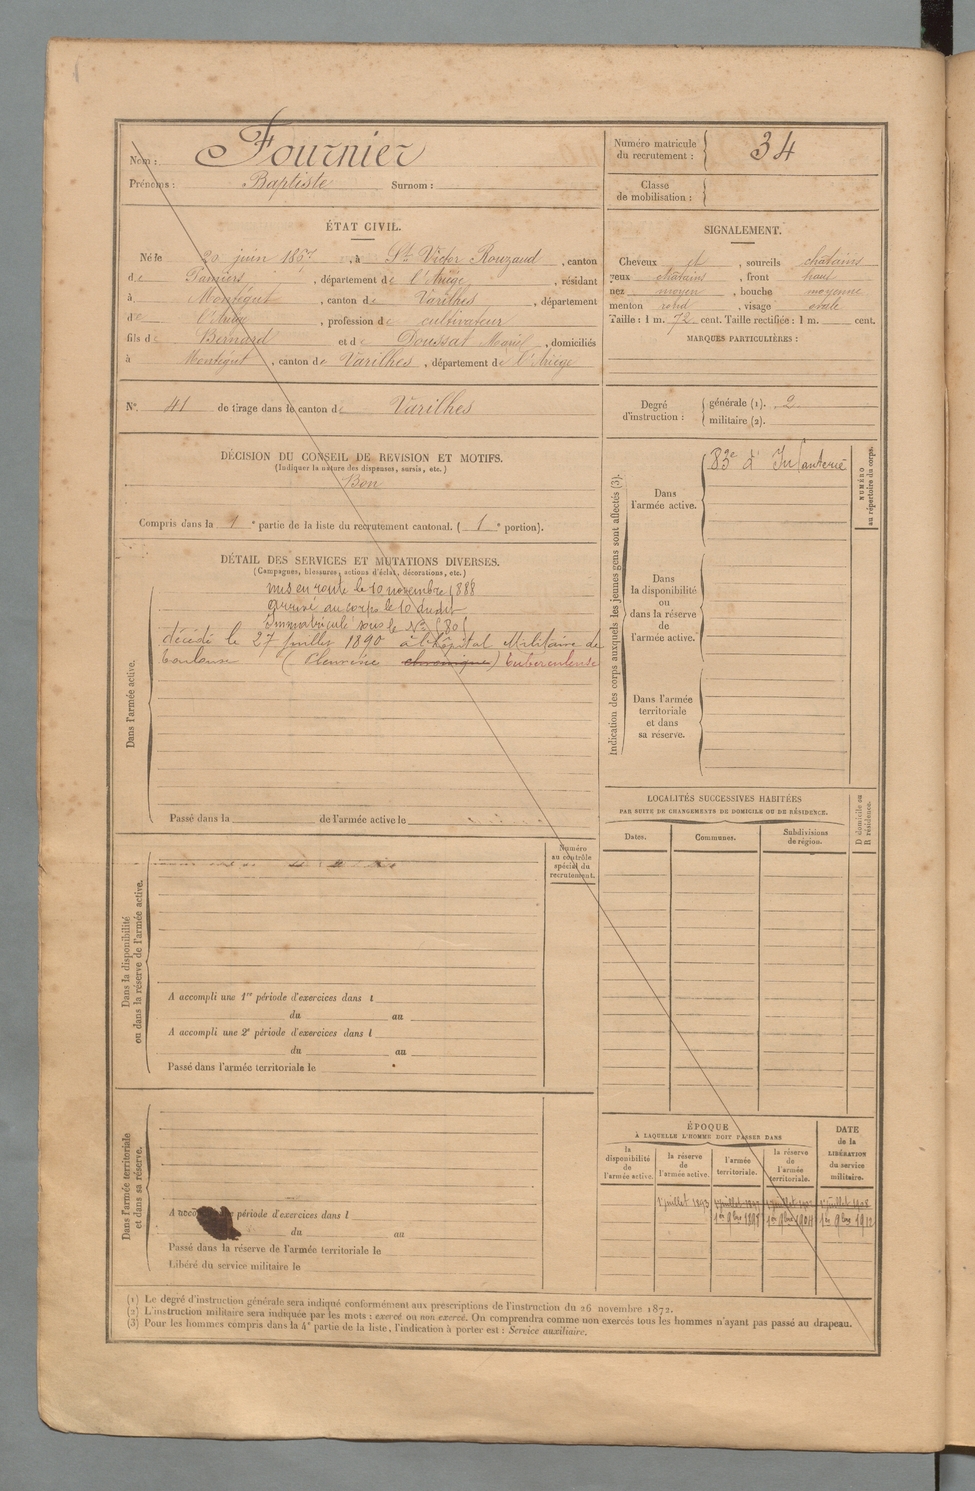 Nom : Fournier
Prénoms : Baptiste Surnom :
Numéro matricule du recrutement : 34
Classe de mobilisation :
ÉTAT CIVIL.
Né le 20 juin 1867, à St Victor Rouzaud, canton
de Pamiers, département de l'Ariège, résidant
à Montégut, canton de Varilhes, département
de l'Ariège, profession de cultivateur
fils de Bernard et de Doussat Marie, domiciliés
à Montégut, canton de Varilhes, département de l'Ariège
SIGNALEMENT.
Cheveux et, sourcils châtains
yeux châtains, front haut
nez moyen, bouche moyenne
menton rond, visage ovale
Taille : 1 m. 72 cent. Taille rectifiée : 1 m. cent.
MARQUES PARTICULIÈRES :
N° 41 de tirage dans le canton de Varilhes
Degré d'instruction :
générale (1). 2
militaire (2).
DÉCISION DU CONSEIL DE REVISION ET MOTIFS.
(Indiquer la nature des dispenses, sursis, etc.)
Bon
Compris dans la 1e partie de la liste du recrutement cantonal. (1e portion).
DÉTAIL DES SERVICES ET MUTATIONS DIVERSES.
(Campagnes, blessures, actions d'éclat, décorations, etc.)
Dans l'armée active.
mis en route le 10 novembre 1888
arrivé au corps le 10 dudit
Immatriculé sous le N°
décédé le 27 Juillet 1890 à l'hôpital Militaire de
Toulouse (Pleurésie chronique) tuberculeuse
Passé dans la de l'armée active le
Indication des corps auxquels les jeunes gens sont affectés (3).
Dans l'armée active.
83e d'Infanterie
NUMÉRO au répertoire du corps.
Dans la disponibilité ou dans la réserve de l'armée active.
Dans l'armée territoriale et dans sa réserve.
LOCALITÉS SUCCESSIVES HABITÉES
PAR SUITE DE CHANGEMENTS DE DOMICILE OU DE RÉSIDENCE.
Dates.
Communes.
Subdivisions de région.
D domicile ou R résidence.
Dans la disponibilité ou dans la réserve de l'armée active.
Numéro au contrôle spécial du recrutement.
A accompli une 1re période d'exercices dans l
du au
A accompli une 2e période d'exercices dans l
du au
Passé dans l'armée territoriale le
Dans l'armée territoriale et dans sa réserve.
période d'exercices dans l
du au
Passé dans la réserve de l'armée territoriale le
Libéré du service militaire le
ÉPOQUE
À LAQUELLE L'HOMME DOIT PASSER DANS
la disponibilité de l'armée active.
la réserve de l'armée active.
l'armée territoriale.
la réserve de l'armée territoriale.
DATE de la LIBÉRATION du service militaire.
1r juillet 1893
1er 9bre 1898 1er 9bre 1904 1er 9bre 1912
(1) Le degré d'instruction générale sera indiqué conformément aux prescriptions de l'instruction du 26 novembre 1872.
(2) L'instruction militaire sera indiquée par les mots : exercé ou non exercé. On comprendra comme non exercés tous les hommes n'ayant pas passé au drapeau.
(3) Pour les hommes compris dans la 4e partie de la liste, l'indication à porter est : Service auxiliaire.